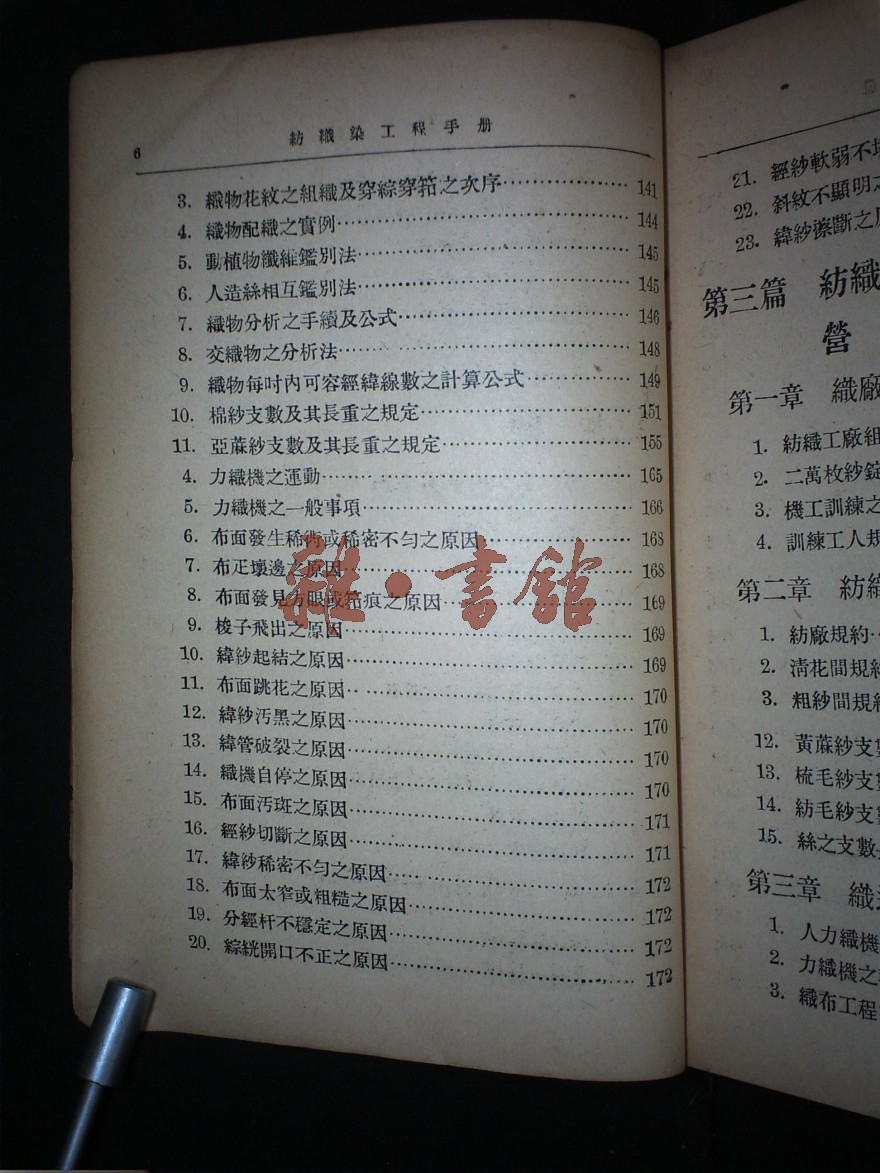 6
紡織染工程手册
3. 織物花紋之組織及穿綜穿筘之次序 141
4. 織物配織之實例 144
5. 動植物纖維鑑別法 145
6. 人造絲相互鑑別法 145
7. 織物分析之手續及公式 146
8. 交織物之分析法 148
9. 織物每吋內可容經緯線數之計算公式 149
10. 棉紗支數及其長重之規定 151
11. 亞蔴紗支數及其長重之規定 155
4. 力織機之運動 165
5. 力織機之一般事項 166
6. 布面發生稀衖或稀密不勻之原因 168
7. 布疋壞邊之原因 168
8. 布面發見方眼或筘痕之原因 169
9. 梭子飛出之原因 169
10. 緯紗起結之原因 169
11. 布面跳花之原因 170
12. 緯紗汚黑之原因 170
13. 緯管破裂之原因 170
14. 織機自停之原因 170
15. 布面汚斑之原因 171
16. 經紗切斷之原因 171
17. 緯紗稀密不勻之原因 172
18. 布面太窄或粗糙之原因 172
19. 分經杆不穩定之原因 172
20. 綜絖開口不正之原因 172
雜·書館
21. 經紗軟弱不
22. 斜紋不顯明之
23. 緯紗擦斷之
第三篇 紡織
營
第一章 織廠
1. 紡織工廠組
2. 二萬枚紗錠
3. 機工訓練之
4. 訓練工人規
第二章 紡織
1. 紡廠規約
2. 淸花間規約
3. 粗紗間規約
12. 黃蔴紗支數
13. 梳毛紗支
14. 紡毛紗支數
15. 絲之支數
第三章 織
1. 人力織機
2. 力織機之
3. 織布工程